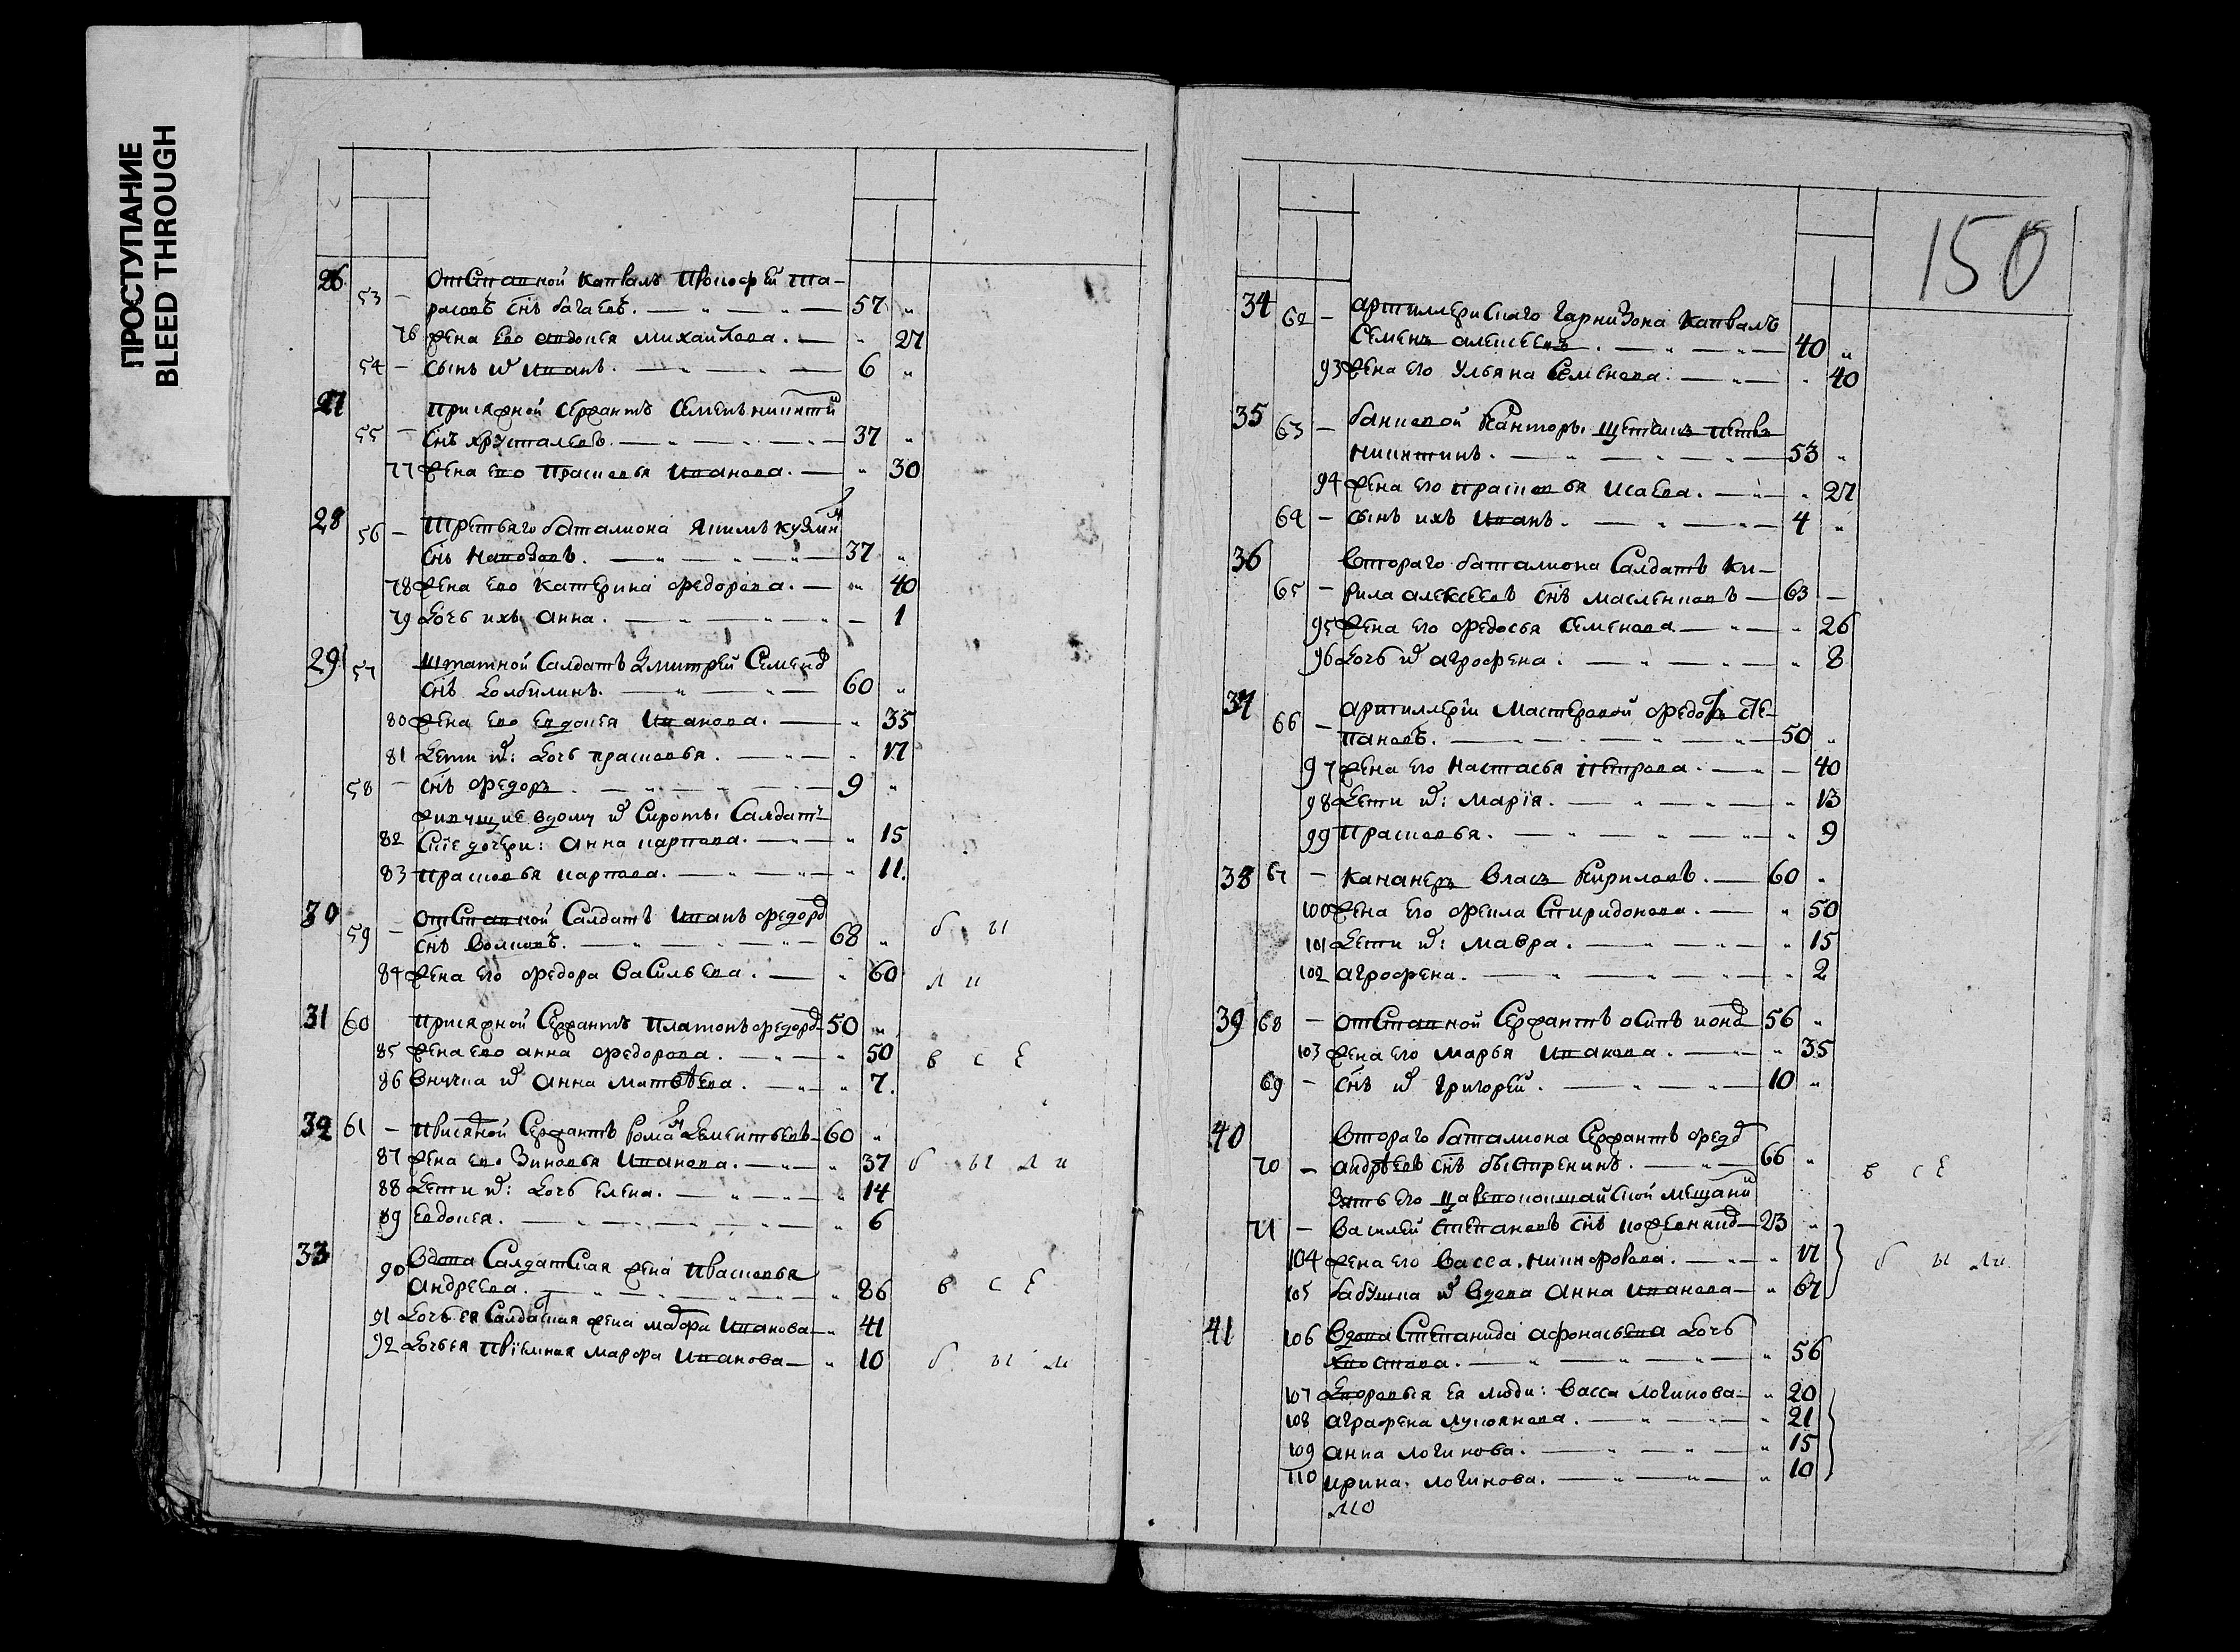 ПРОСТУПАНИЕ
BLEED THROUGH
26 53 – отставной капралъ тимофей та-
расовъ снъ багаевъ. 57 "
76 жена ево авдотея михайлова. " 27
54 – сынъ их иванъ. 6 "
27 присяжной сержантъ семенъ никити
55 – снъ хрусталевъ. 37 "
77 жена ево прасковья иванова. " 30
28 56 – третьяго баталиона якимъ кузмин
снъ 37 "
78 жена ево катерина федорова. " 40
79 дочь ихъ анна. – 1
29 57 штатной салдатъ дмитрей семено
снъ 60 "
80 жена ево евдокея иванова. " 35
81 дети их: дочь прасковья. " 17
58 – снъ федоръ. 9 "
живущие вдому их сироты салдат
82 ские дочери: анна карпова. " 15
83 прасковья карпова. " 11.
30 59 – отставной салдатъ иванъ федоро
снъ волковъ. 68 " б ы
84 жена его федора васильева. " 60 л и
31 60 присяжной сержантъ платонъ федоро 50 "
85 жена ево анна федорова. " 50 в с е
86 внучка их анна матвѣева. " 7.
32 61 – присяжной сержантъ рома дементьевъ 60 "
87 жена ево зиновья иванова. " 37 б ы л и
88 дети их: дочь елена. " 14
89 евдокея. " 6
33 90 вдова салдатская жена прасковья
андреева. " 86 в с е
91 дочь ея салдатская жена иванова " 41
92 дочь ея приемная марфа иванова " 10 б ы л
150
34 62 – артиллерискаго гарнизона капралъ
семенъ алексеевъ. 40 "
93 жена его ульяна семенова. " 40
35 63 – банковой канторы щетчикъ петръ
никитинъ. 53 "
94 жена его прасковья исаева. " 27
64 – сынъ ихъ иванъ. 4 "
36 втораго баталиона салдатъ ки-
65 – рила алексеевъ снъ масленковъ 63 –
95 жена его федосья семенова " 26
96 дочь их агрофена. " 8
37 66 – артиллерiи мастеровой федоръ сте-
пановъ. 50 "
97 жена его настасья петрова. – 40
98 дети их: марiя. " 13
99 прасковья. " 9
38 67 – кананеръ власъ кириловъ. 60 "
100 жена его фекла спиридонова. " 50
101 дети их: мавра. " 15
102 агрофена. " 2
39 68 – отставной сержантъ осипъ 56 "
103 жена его марья иванова. " 35
69 – снъ их григорей. 10 "
40 втораго баталиона сержантъ федо
70 – андрѣевъ снъ быстренинъ. 66 " в с е
зять его царевококшайской мещани
71 – василей степановъ снъ кожевнико 23 "
104 жена его васса никифорова. " 17 б ы ли
105 бабушка их вдова анна иванова " 67
41 106 вдова степанида афонасьева дочь
хвостова. " 56
107 дворовыя ея люди: васса логинова " 20
108 аграфена лукоянова. " 21
109 анна логинова. " 15
110 ирина логинова. " 10
110